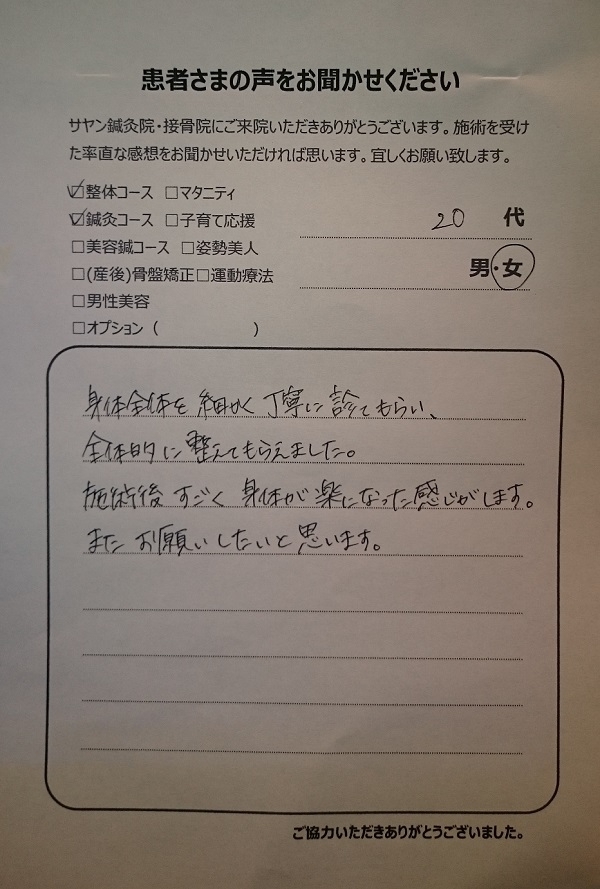 患者さまの声をお聞かせください
サヤン鍼灸院・接骨院にご来院いただきありがとうございます。施術を受け
た率直な感想をお聞かせいただければ思います。宜しくお願い致します。
☑整体コース □マタニティ
☑鍼灸コース □子育て応援
20 代
□美容鍼コース □姿勢美人
男・女
□(産後)骨盤矯正□運動療法
□男性美容
□オプション ( )
身体全体を細かく丁寧に診てもらい、
全体的に整えてもらえました。
施術後すごく身体が楽になった感じがします。
またお願いしたいと思います。
ご協力いただきありがとうございました。